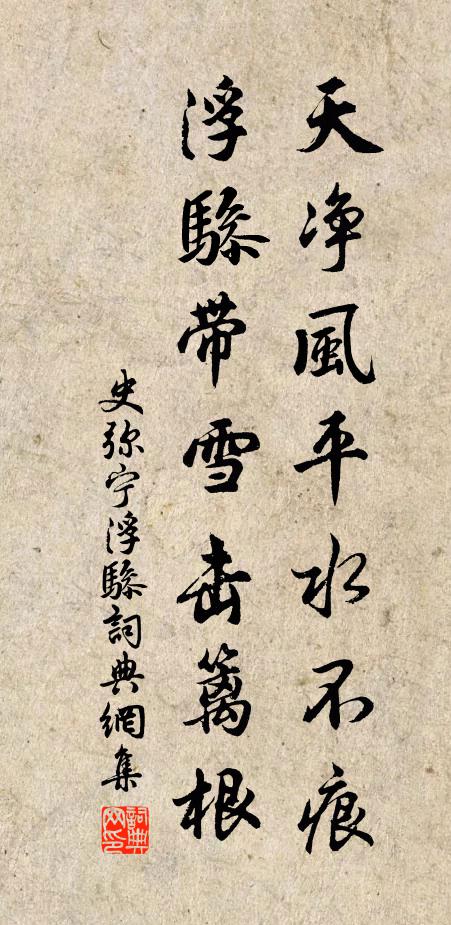 天净風平水不痕
浮驂帶雪击篱根
史弥宁浮驂詞典網集
詞典網印